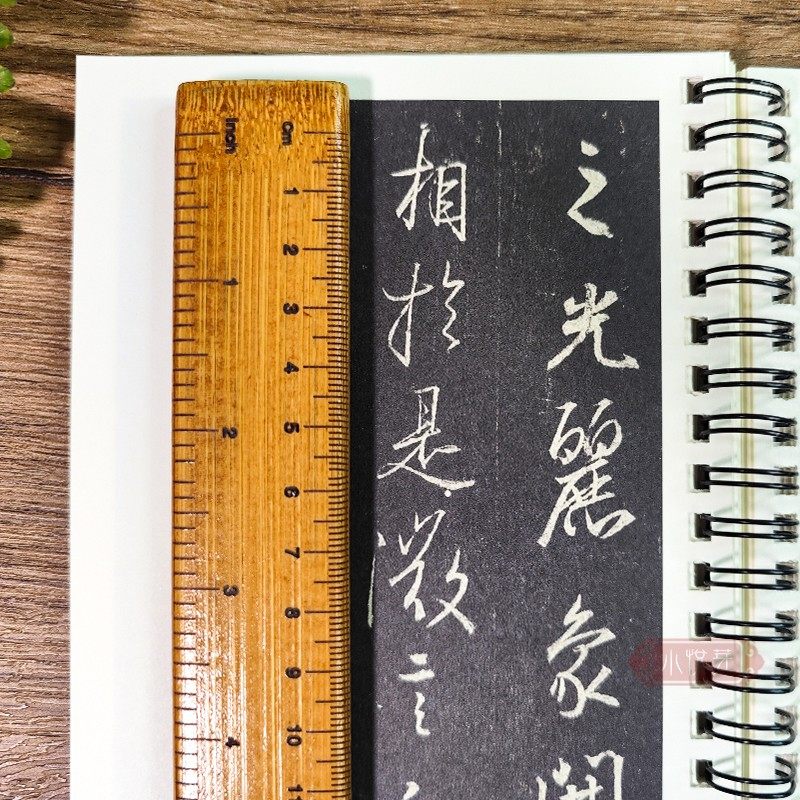 之光麗象開
相於是微言
Cm 1 2 3 4 5 6 7 8 9 10
Inch 1 2 3 4
小悅芽